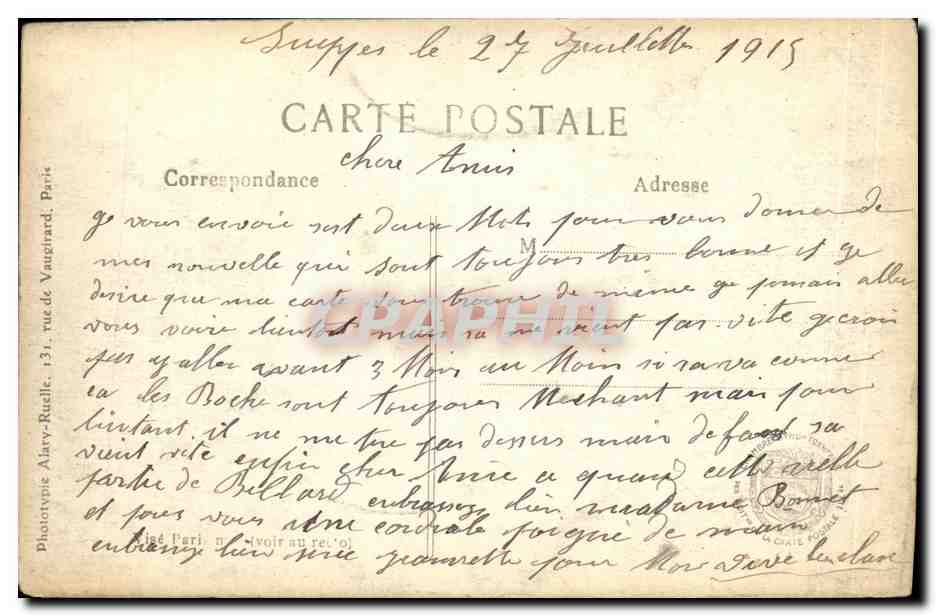 Suppes le 27 Juillette 1915
CARTE POSTALE
chere Amis
Correspondance
Adresse
ge vous envoie set deux Mots pour vous donner de
M
mes nouvelle qui sont toujours tres bonne et ge
desire que ma carte vous trouve de même ge pensais aller
vous voire bientot mais sa ne vient pas vite ge crois
pas y aller avant 3 Mois au Moin si sa va comme
ca les Boche sont toujours Mechant mais pour
lintant il ne me tire pas dessus mais de sa
vient vite enfin cher Amie a quand cette belle
partie de Billard enbrassez bien madame Bonnet
et pour vous une cordiale poigné de main
enbrassez bien Jeannette pour Moi
Visé Paris n (voir au recto)
Phototypie Alary-Ruelle, 131, rue de Vaugirard, Paris
CPAPHIL
LA CARTE POSTALE